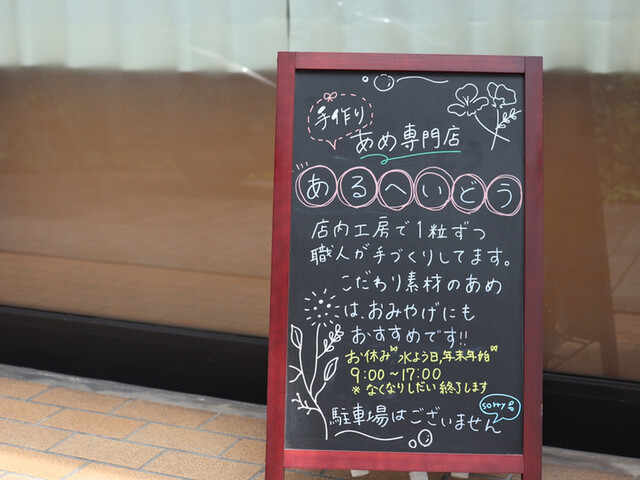 手作り
あめ専門店
あるへいどう
店内工房で1粒ずつ
職人が手づくりしてます。
こだわり素材のあめ
は、おみやげにも
おすすめです!!
お休み"水よう日,年末年始"
9:00～17:00
※なくなりしだい終了します
sorry
駐車場はございません